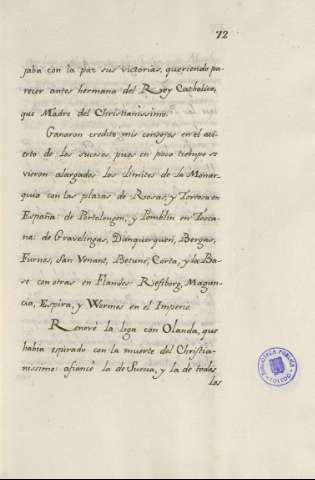 72
jaba con la paz sus victorias, queriendo pa-
recer antes hermana del Rey Catholico,
que Madre del Christianissimo.
Ganaron credito mis consejos en el aci-
erto de los sucesos, pues en poco tiempo se
vieron alargados los limites de la Monar-
quia con las plazas de Rosas, y Tortosa en
España: de Portolongon, y Pomblin en Tosca-
na: de Gravelingas, Dunquerquen, Bergas,
Furnos, San Venant, Betune, y la Ba-
se con otras en Flandes: Magun-
cia, Espira, y Wormes en el Imperio
Renové la liga con Olanda, que
habia espirado con la muerte del Christia-
nissimo: afiancé la de Suecia, y la de todos
los
BIBLIOTECA PUBLICA
TOLEDO